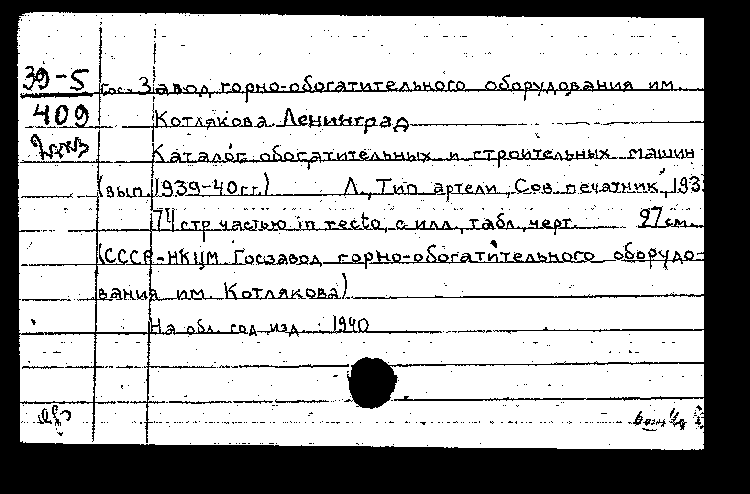 39-5 Гос. Завод горно-обогатительного оборудования им.
409 Котлякова. Ленинград
Каталог обогатительных и строительных машин
(вып. 1939-40 гг.) Л., Тип. артели „Сов. печатник", 193
74 стр. частью in recto, с илл., табл., черт. 27 см.
(СССР-НКЦМ. Госзавод горно-обогатительного оборудо-
вания им. Котлякова)
На обл. год изд.: 1940